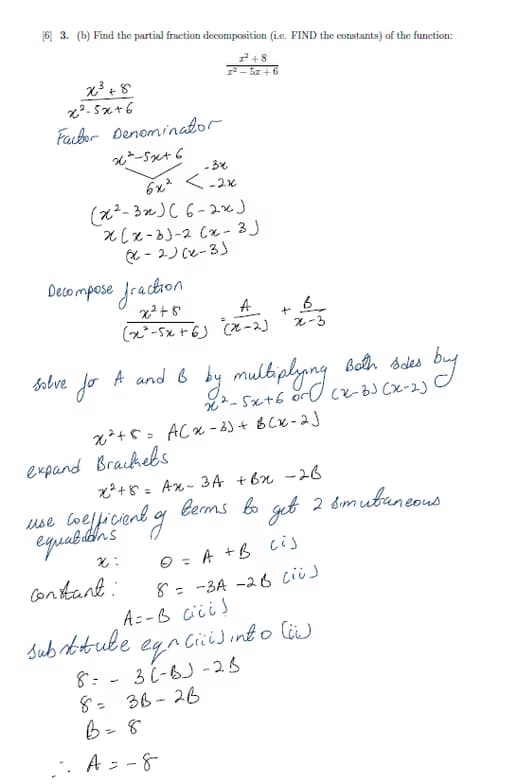 [6] 3. (b) Find the partial fraction decomposition (i.e. FIND the constants) of the function:
x² + 8
x² − 5x + 6
x³ + 8
x² - 5x + 6
Factor Denominator
x² - 5x + 6
6x² < -3x
-2x
(x² - 3x)(6 - 2x)
x(x - 3) - 2(x - 3)
(x - 2)(x - 3)
Decompose fraction
x² + 8 = A + B
(x² - 5x + 6) (x - 2) x - 3
solve for A and B by multiplying Both sides buy
x² - 5x + 6 or (x - 3)(x - 2)
x² + 8 = A(x - 3) + B(x - 2)
expand Brackets
x² + 8 = Ax - 3A + Bx - 2B
use coefficient of terms to get 2 simutaneous
equations
x: 0 = A + B (i)
constant: 8 = -3A - 2B (ii)
A = -B (iii)
substitute eqn (iii) into (ii)
8 = - 3(-B) - 2B
8 = 3B - 2B
B = 8
∴ A = -8